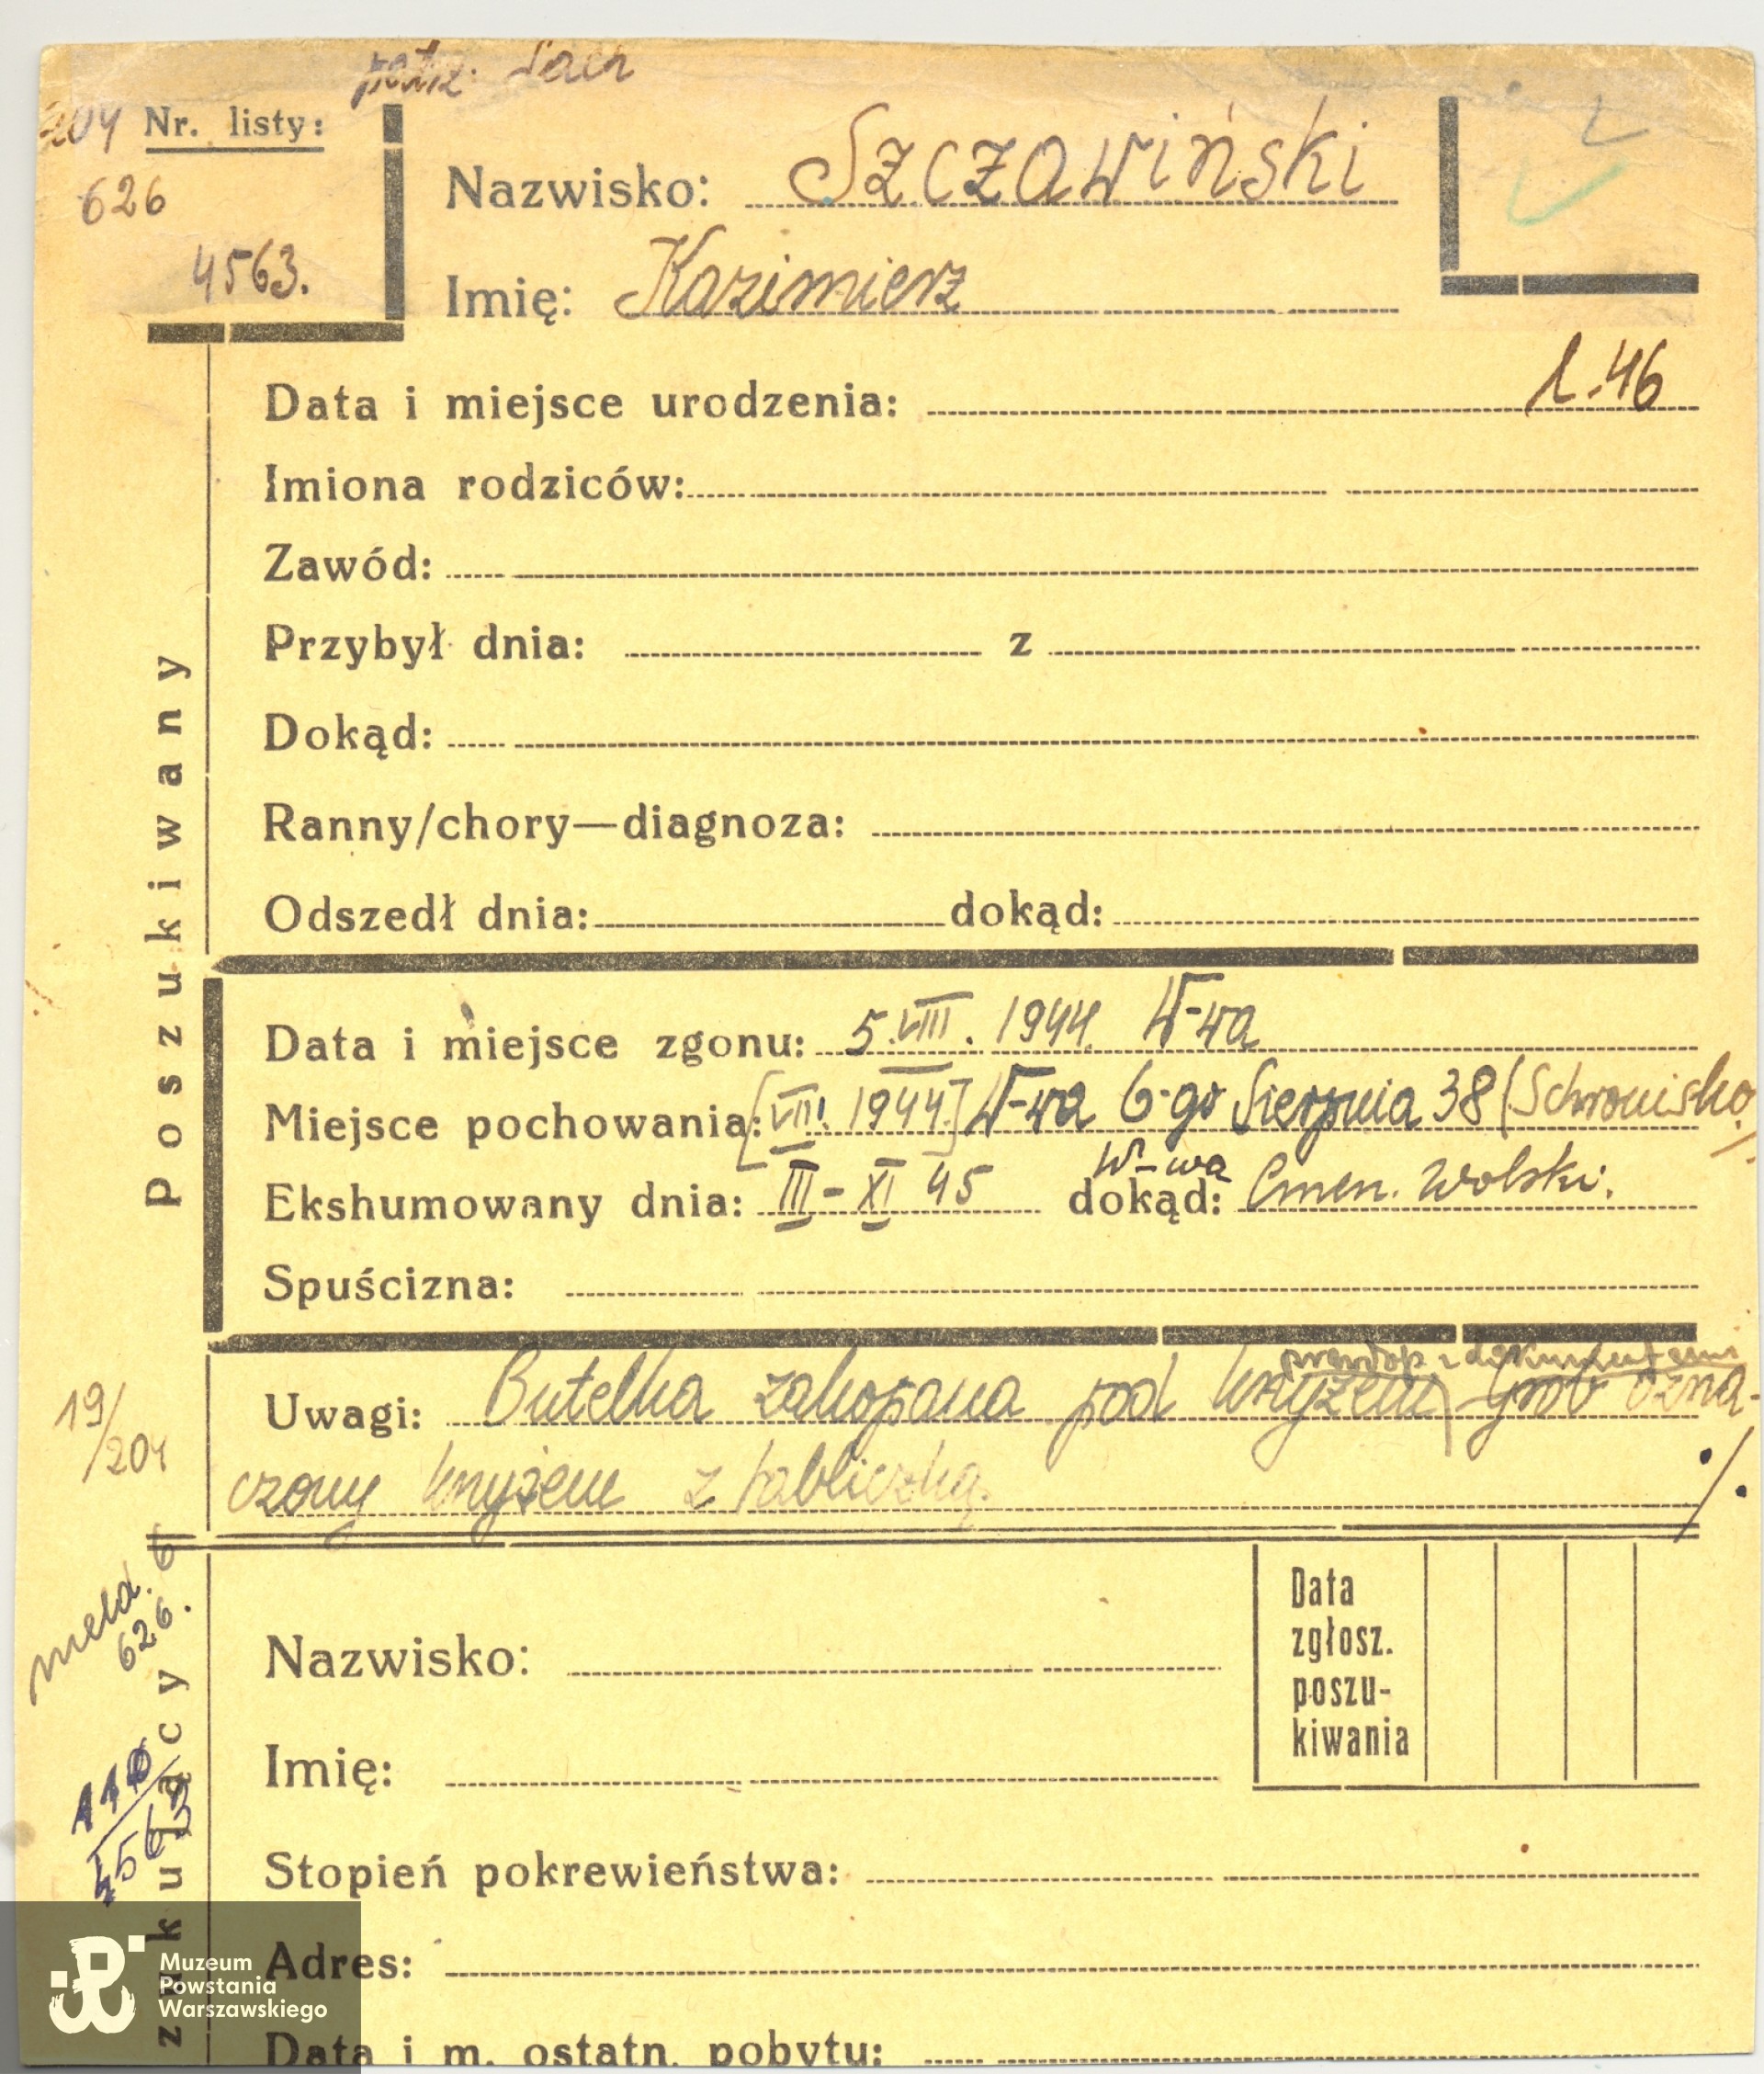 patrz. Lach
204 Nr. listy:
626
4563.
Nazwisko: Szczawiński
Imię: Kazimierz
Data i miejsce urodzenia: l. 46
Imiona rodziców:
Zawód:
Przybył dnia: z
Dokąd:
Ranny/chory—diagnoza:
Odszedł dnia: dokąd:
Poszukiwany
Data i miejsce zgonu: 5.VIII. 1944. W-wa
Miejsce pochowania: [VIII. 1944.] W-wa 6-go Sierpnia 38 (Schronisko)
W-wa
Ekshumowany dnia: III - XI 45 dokąd: Cmen. Wolski.
Spuścizna:
prawdop. z dokumentami
Uwagi: Butelka zakopana pod krzyżem) Grób ozna-
czony krzyżem z tabliczką.
./.
19/204
meld. 6
626.
4563
zukujący
Nazwisko:
Imię:
Data
zgłosz.
poszu-
kiwania
Stopień pokrewieństwa:
Adres:
Data i m. ostatn. pobytu:
Muzeum
Powstania
Warszawskiego